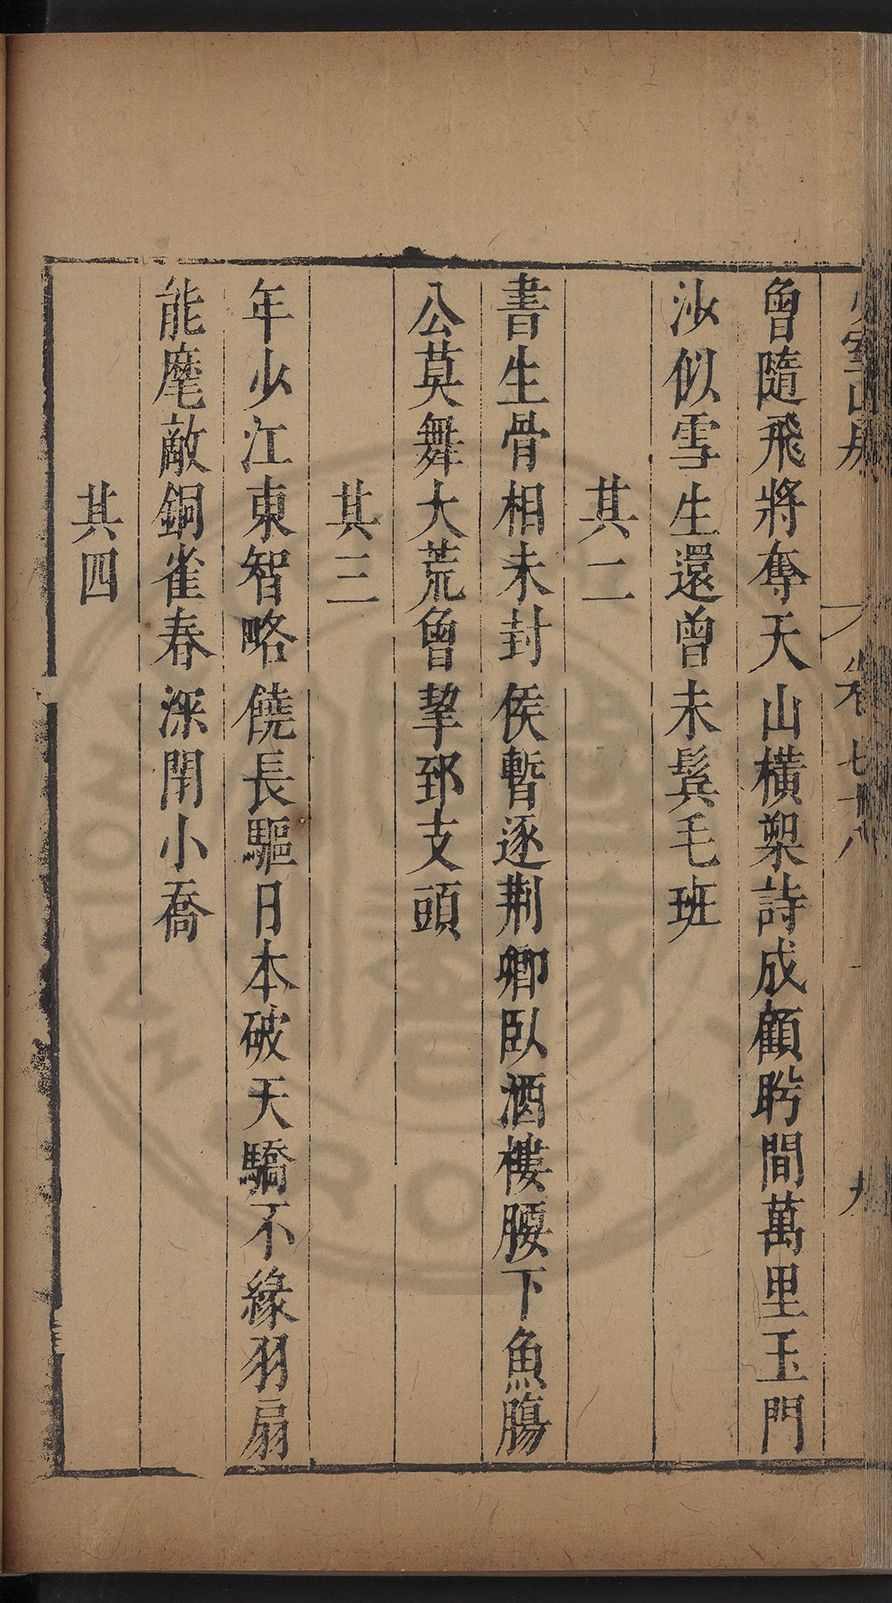 少室山房
卷七十八
九
曾隨飛將奪天山橫槊詩成顧盻間萬里玉門
沙似雪生還曾未鬂毛班
其二
書生骨相未封侯暫逐荆卿臥酒樓腰下魚腸
公莫舞大荒曾挈郅支頭
其三
年少江東智略饒長驅日本破天驕不緣羽扇
能麾敵銅雀春深閉小喬
其四